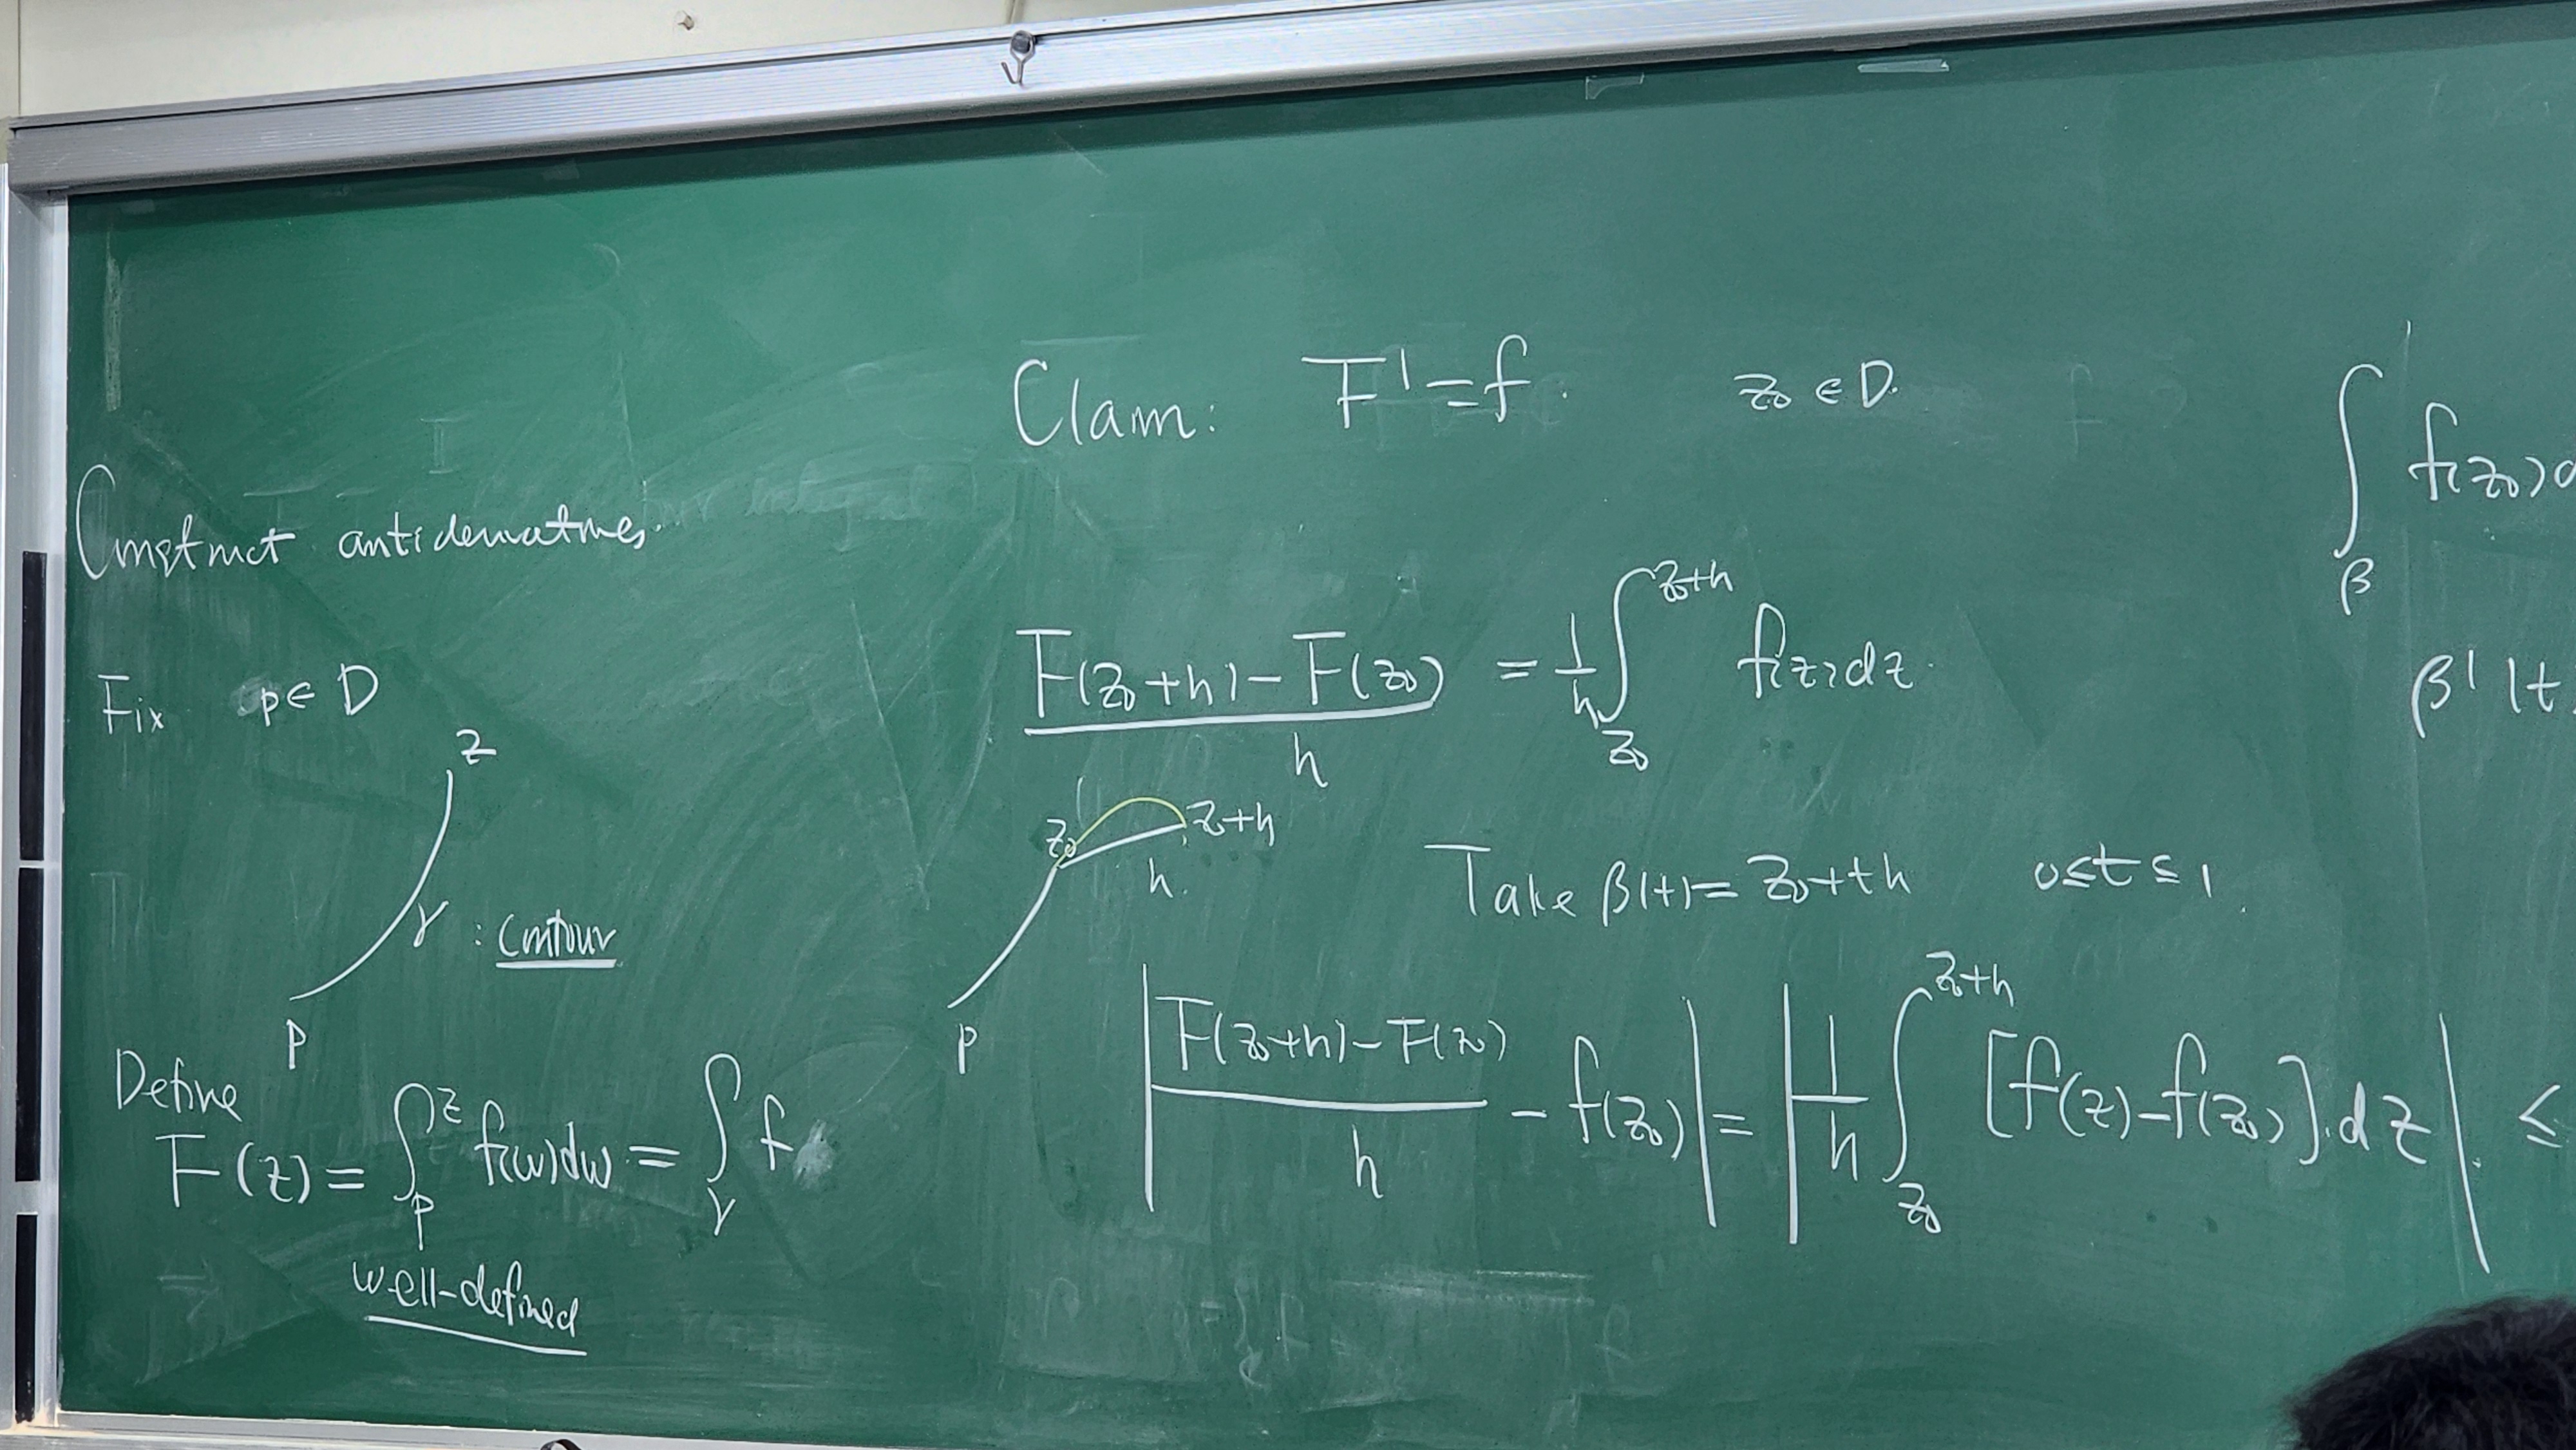 Construct antiderivatives.
Fix p∈D
z
γ : contour
p
Define
F(z) = ∫_p^z f(w)dw = ∫_γ f
well-defined
Claim: F' = f. z₀ ∈ D.
F(z₀+h) - F(z₀) / h = 1/h ∫_{z₀}^{z₀+h} f(z)dz.
z₀ z₀+h
h.
p
Take β(t) = z₀+th 0≤t≤1.
| F(z₀+h) - F(z₀) / h - f(z₀) | = | 1/h ∫_{z₀}^{z₀+h} [f(z)-f(z₀)].dz | ≤
∫_β f(z₀)d
β'(t